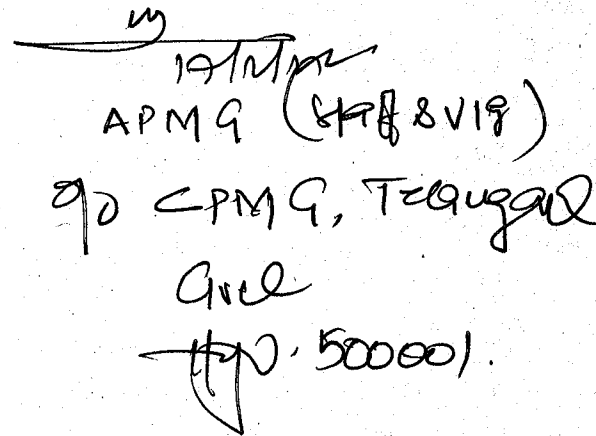 APMG (Staff & VIG)
O/o CPMG, Telangana
Circle
Hyd. 500001.